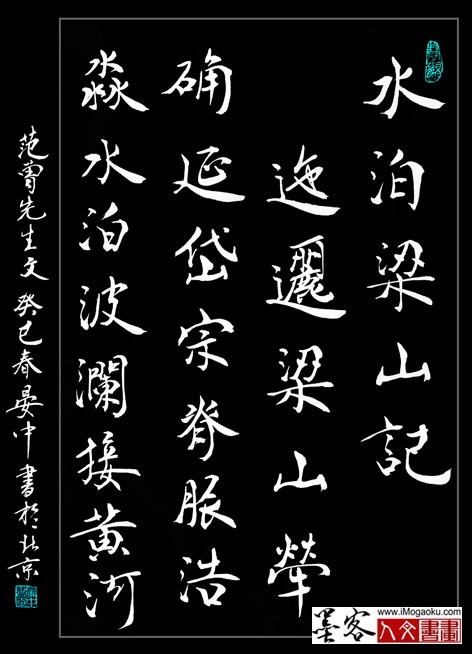 水泊梁山記
迤邐梁山犖
确延岱宗脊脈浩
淼水泊波瀾接黄河
范曾先生文癸巳春晏中書於北京
墨客 www.iMogaoku.com
人文書畫